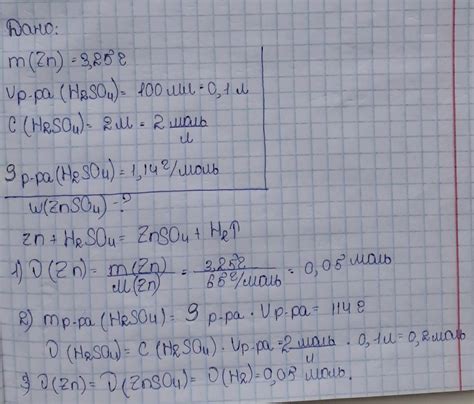 Дано:
m(Zn) = 3,25г
Vр-ра (H2SO4) = 100 мл = 0,1 л
C (H2SO4) = 2М = 2 моль/л
ρ р-ра (H2SO4) = 1,14 г/моль
w(ZnSO4) - ?
Zn + H2SO4 = ZnSO4 + H2↑
1) ν (Zn) = m(Zn)/M(Zn) = 3,25г/65г/моль = 0,05 моль
2) mр-ра (H2SO4) = ρ р-ра · Vр-ра = 114 г
ν (H2SO4) = C (H2SO4) · Vр-ра = 2 моль/л · 0,1 л = 0,2 моль
3) ν(Zn) = ν(ZnSO4) = ν(H2) = 0,05 моль.